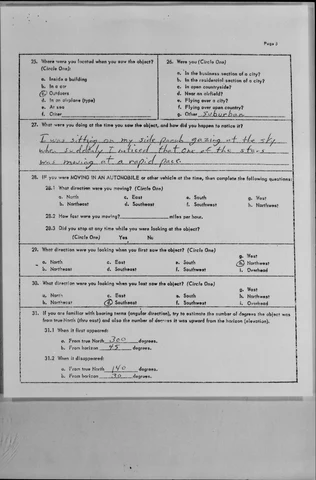 Page 2
25. Where were you located when you saw the object?
(Circle One):
a. Inside a building
b. In a car
c. Outdoors
d. In an airplane (type)
e. At sea
f. Other
26. Were you (Circle One)
a. In the business section of a city?
b. In the residential section of a city?
c. In open countryside?
d. Near an airfield?
e. Flying over a city?
f. Flying over open country?
g. Other Suburban
27. What were you doing at the time you saw the object, and how did you happen to notice it?
I was sitting on my side porch gazing at the sky
when suddenly I noticed that one of the stars
was moving at a rapid pace.
28. IF you were MOVING IN AN AUTOMOBILE or other vehicle at the time, then complete the following questions:
28.1 What direction were you moving? (Circle One)
a. North c. East e. South g. West
b. Northeast d. Southeast f. Southwest h. Northwest
28.2 How fast were you moving? miles per hour.
28.3 Did you stop at any time while you were looking at the object?
(Circle One) Yes No
29. What direction were you looking when you first saw the object? (Circle One)
a. North c. East e. South g. West
b. Northeast d. Southeast f. Southwest h. Northwest
i. Overhead
30. What direction were you looking when you last saw the object? (Circle One)
a. North c. East e. South g. West
b. Northeast d. Southeast f. Southwest h. Northwest
i. Overhead
31. If you are familiar with bearing terms (angular direction), try to estimate the number of degrees the object was
from true North (thru east) and also the number of degrees it was upward from the horizon (elevation).
31.1 When it first appeared:
a. From true North 300 degrees.
b. From horizon 45 degrees.
31.2 When it disappeared:
a. From true North 140 degrees.
b. From horizon degrees.